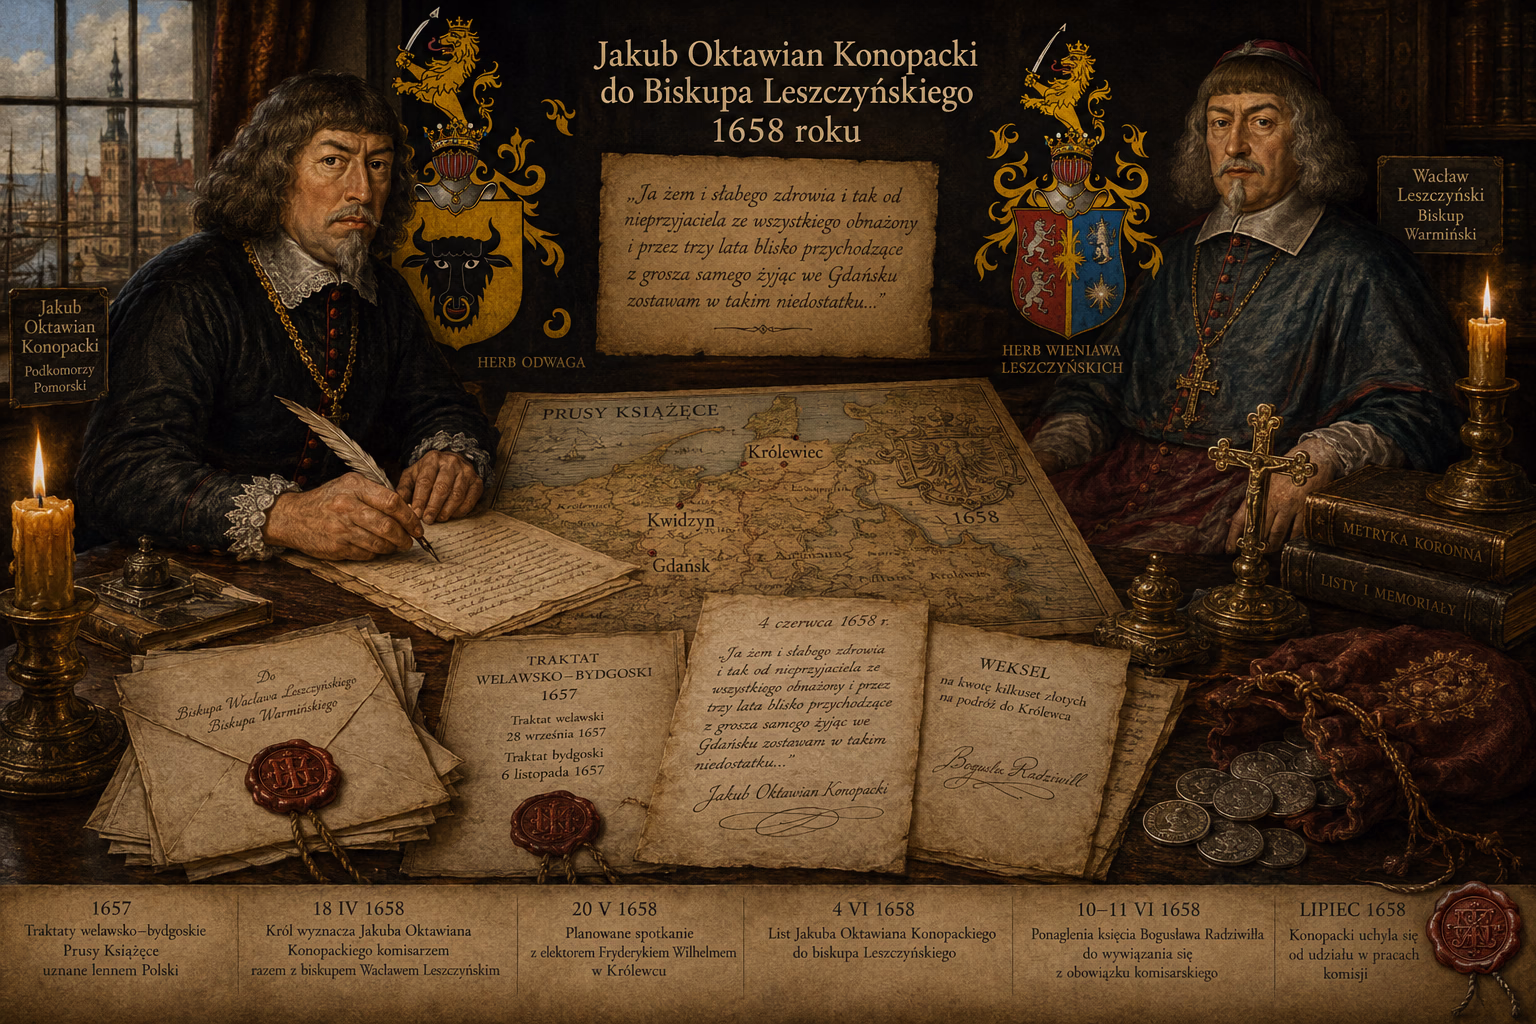 Jakub Oktawian Konopacki
do Biskupa Leszczyńskiego
1658 roku
„Ja żem i słabego zdrowia i tak od
nieprzyjaciela ze wszystkiego obnażony
i przez trzy lata blisko przychodzące
z grosza samego żyjąc we Gdańsku
zostawam w takim niedostatku...”
Wacław
Leszczyński
Biskup
Warmiński
Jakub
Oktawian
Konopacki
Podkomorzy
Pomorski
HERB ODWAGA
HERB WIENIAWA
LESZCZYŃSKICH
PRUSY KSIĄŻĘCE
Królewiec
Kwidzyn
Gdańsk
1658
METRYKA KORONNA
LISTY I MEMORIAŁY
Do
Biskupa Wacława Leszczyńskiego
Biskupa Warmińskiego
TRAKTAT
WELAWSKO–BYDGOSKI
1657
Traktat welawski
28 września 1657
Traktat bydgoski
6 listopada 1657
4 czerwca 1658 r.
„Ja żem i słabego zdrowia
i tak od nieprzyjaciela ze
wszystkiego obnażony i przez
trzy lata blisko przychodzące
z grosza samego żyjąc we
Gdańsku zostawam w takim
niedostatku...”
Jakub Oktawian Konopacki
WEKSEL
na kwotę kilkuset złotych
na podróż do Królewca
Bogusław Radziwiłł
1657
Traktaty welawsko–bydgoskie
Prusy Książęce
uznane lennem Polski
18 IV 1658
Król wyznacza Jakuba Oktawiana
Konopackiego komisarzem
razem z biskupem Wacławem Leszczyńskim
20 V 1658
Planowane spotkanie
z elektorem Fryderykiem Wilhelmem
w Królewcu
4 VI 1658
List Jakuba Oktawiana Konopackiego
do biskupa Leszczyńskiego
10–11 VI 1658
Ponaglenia księcia Bogusława Radziwiłła
do wywiązania się
z obowiązku komisarskiego
LIPIEC 1658
Konopacki uchyla się
od udziału w pracach
komisji